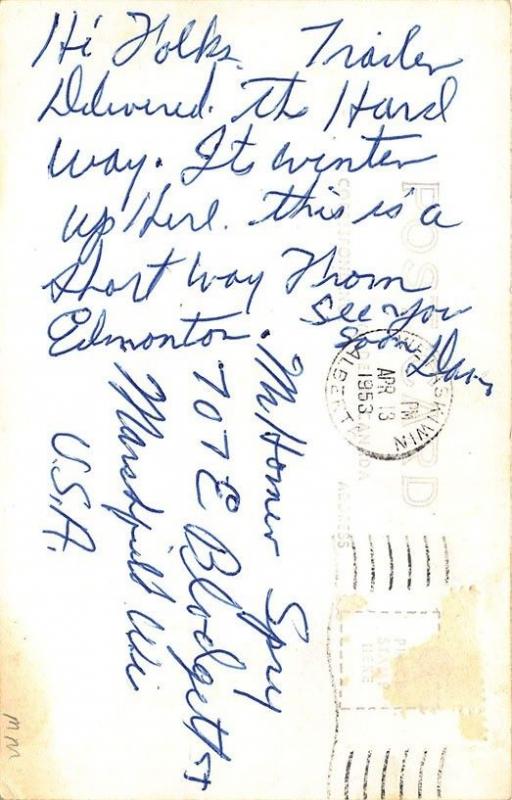 Hi Folks. Trailer
Delivered. the Hard
way. Its winter
up Here. this is a
short way From
Edmonton.
See you
soon Dan
Mr Homer Spry
707 E Blodgett St
Marshfield Wi
U.S.A.
WETASKIWIN
PM
APR 13
1953
ALBERTA
POST CARD
CANADA
ADDRESS
STAMP
HERE
mm